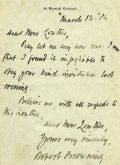 19. Warwick Crescent.
March 12. '84
Dear Mrs Lowther,
Pray let me say how sorry I am
that I found it impossible to
obey your kind invitation last
evening.
Believe me, with all regards to
Dear Mrs Lowther,
Yours very sincerely,
Robert Browning